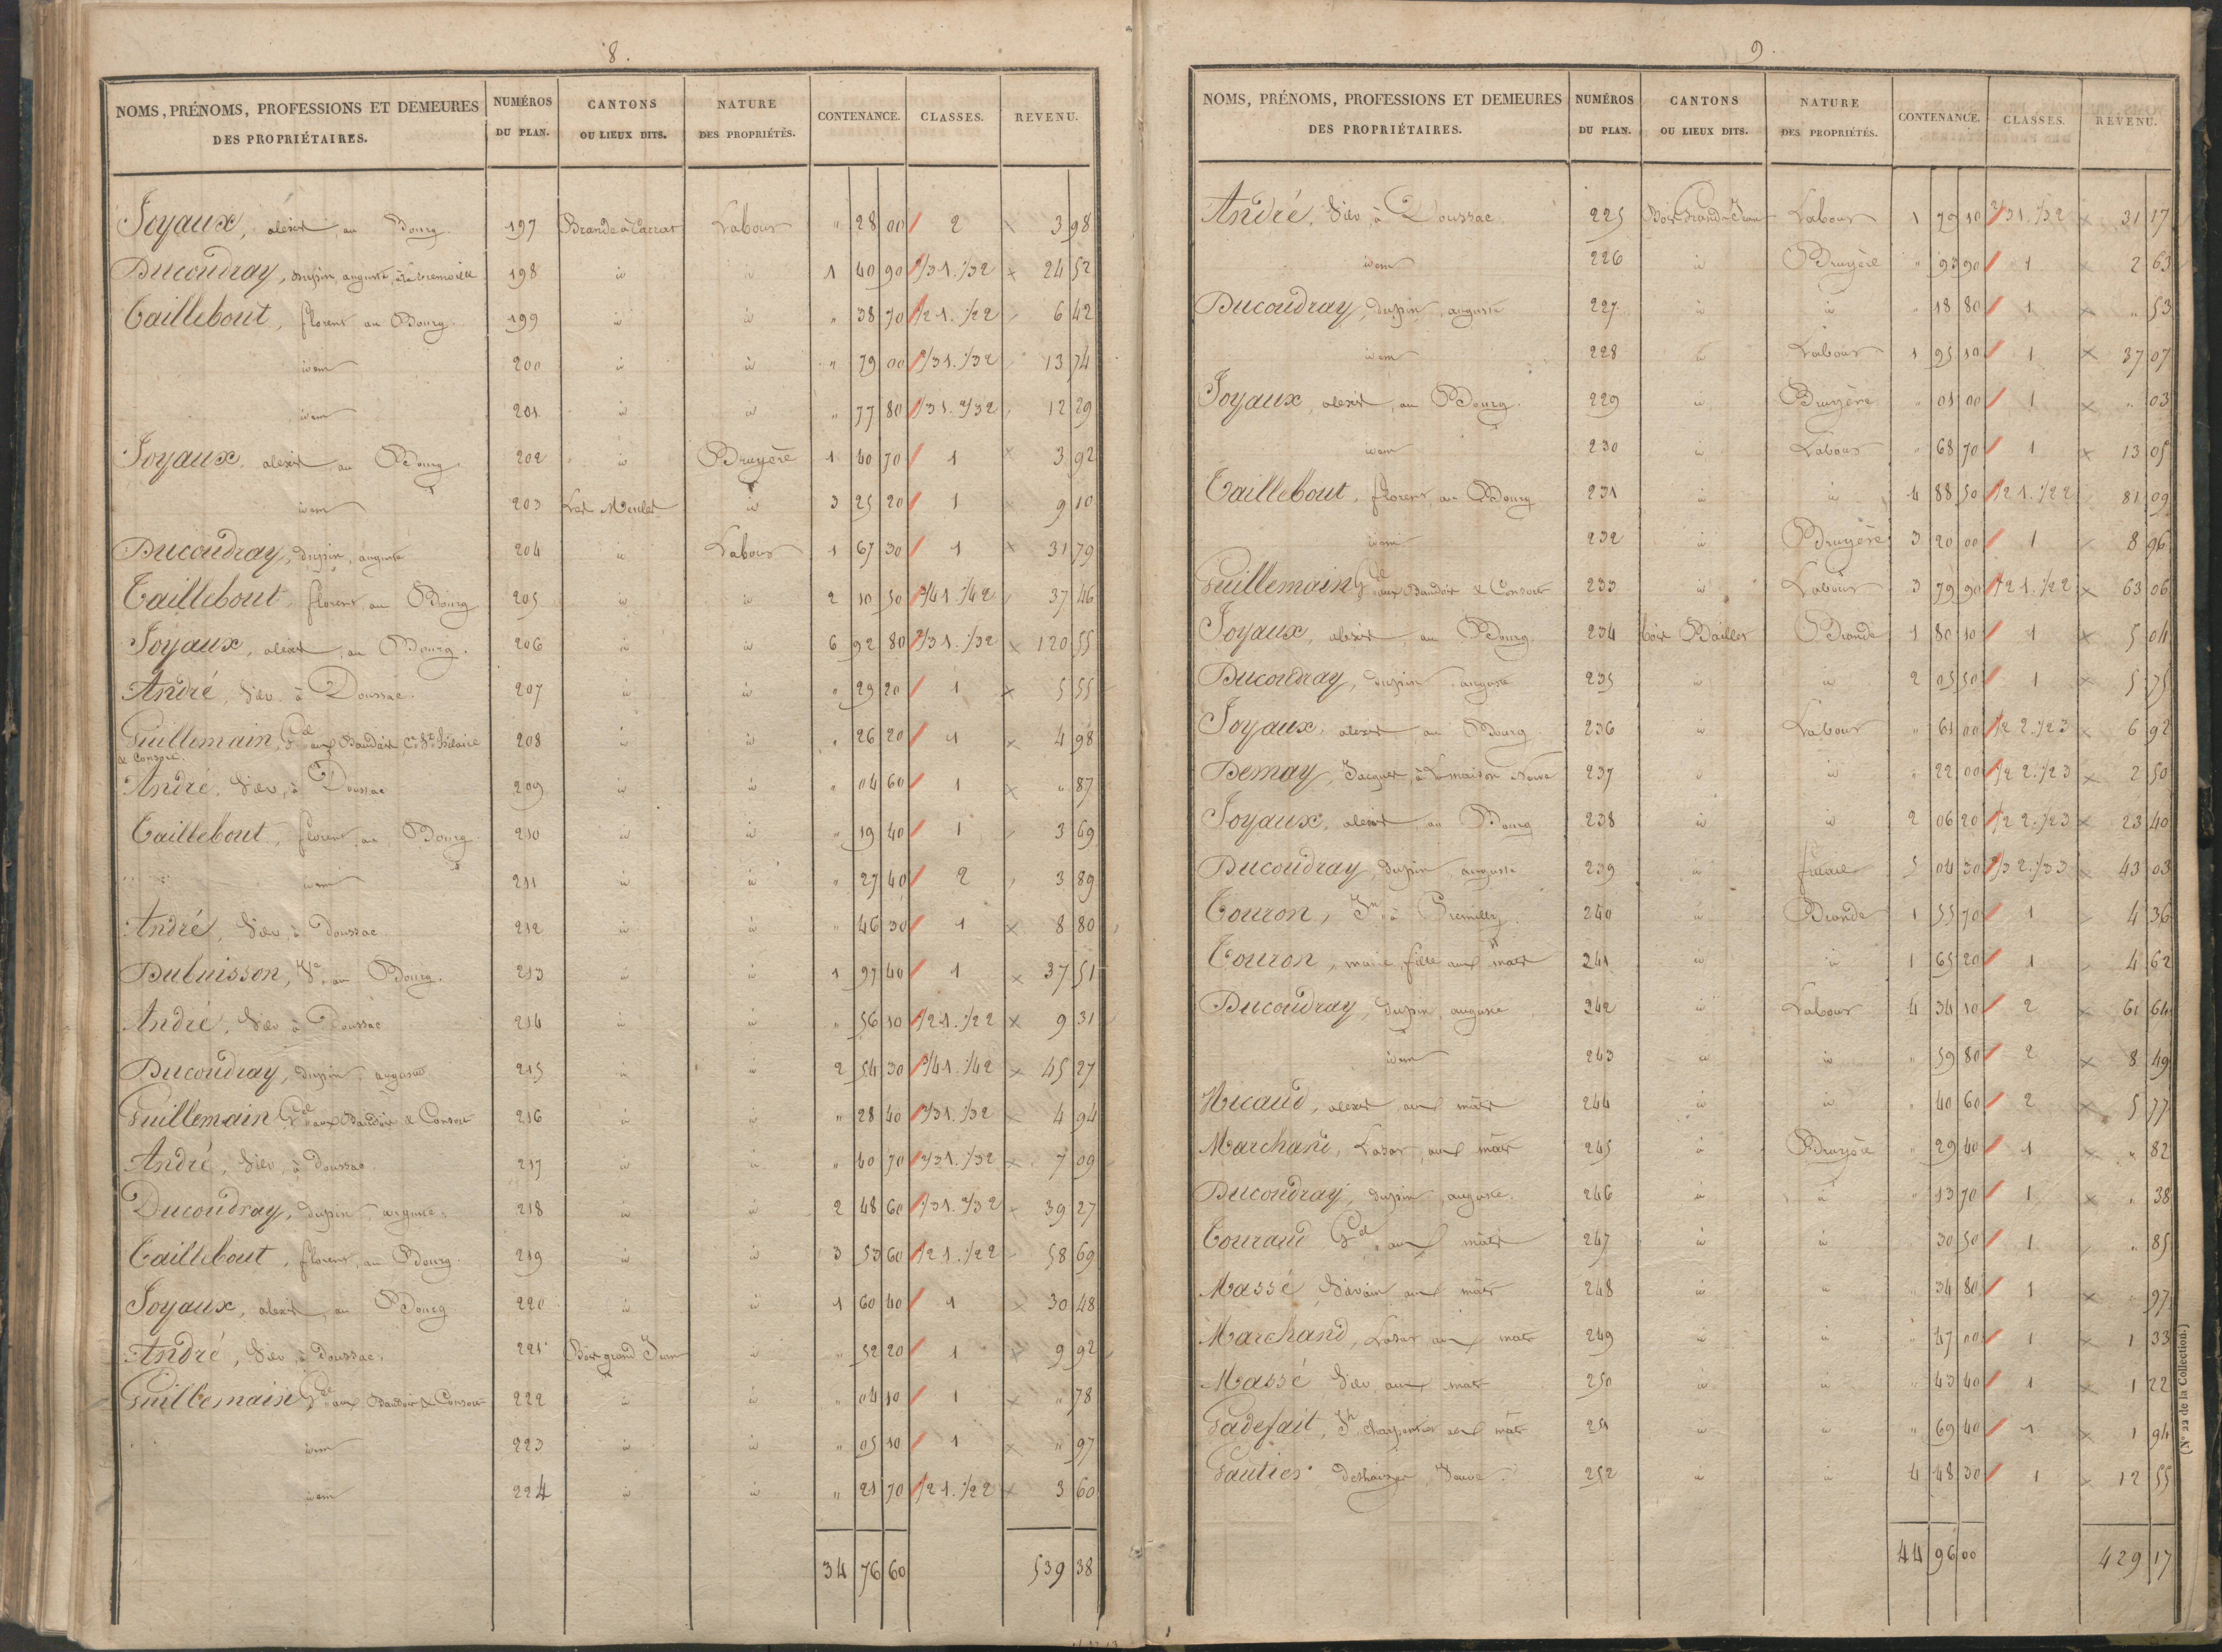 8.
NOMS, PRÉNOMS, PROFESSIONS ET DEMEURES DES PROPRIÉTAIRES. NUMÉROS DU PLAN. CANTONS OU LIEUX DITS. NATURE DES PROPRIÉTÉS. CONTENANCE. CLASSES. REVENU.
Joyaux, alexis, au Bourg. 197 Brande à Labour " 28 00 2 3 98
Ducoudray, dupin, auguste, 198 id id 1 40 90 2/3 1. 1/3 2 24 52
Taillebout, florent au Bourg. 199 id id " 38 70 1/2 1. 1/2 2 6 42
idem 200 id id " 79 00 2/3 1. 1/3 2 13 74
idem 201 id id " 77 80 1/3 1. 2/3 2 12 29
Joyaux, alexis, au Bourg. 202 id Bruyère 1 40 70 1 3 92
idem 203 Les id 3 25 20 1 9 10
Ducoudray, dupin, auguste 204 id Labour 1 67 30 1 31 79
Taillebout, florent, au Bourg 205 id id 2 10 50 3/4 1. 1/4 2 37 46
Joyaux, alexis, au Bourg. 206 id id 6 92 80 2/3 1. 1/3 2 120 55
André, Silv. à Doussac. 207 id id " 29 20 1 5 55
Guillemain, Gel aux Baudois, Cne St hilaire & Consort. 208 id id " 26 20 1 4 98
André, Silv. à Doussac 209 id id " 04 60 1 " 87
Taillebout, florent, au Bourg 210 id id " 19 40 1 3 69
idem 211 id id " 27 40 2 3 89
André, Silv. à Doussac 212 id id " 46 30 1 8 80
Dubuisson, Ve. au Bourg. 213 id id 1 97 40 1 37 51
André, Silv. à Doussac 214 id id " 56 10 1/2 1. 1/2 2 9 31
Ducoudray, dupin, auguste 215 id id 2 54 30 3/4 1. 1/4 2 45 27
Guillemain Gel aux Baudois & Consort 216 id id " 28 40 2/3 1. 1/3 2 4 94
André, Silv. à Doussac 217 id id " 40 70 2/3 1. 1/3 2 7 09
Ducoudray, dupin, auguste. 218 id id 2 48 60 1/3 1. 2/3 2 39 27
Taillebout, florent, au Bourg. 219 id id 3 53 60 1/2 1. 1/2 2 58 69
Joyaux, alexis, au Bourg 220 id id 1 60 40 1 30 48
André, Silv. à Doussac. 221 Bois grand Jean id " 52 20 1 9 92
Guillemain Gel aux Baudois & Consort 222 id id " 04 10 1 " 78
idem 223 id id " 05 10 1 " 97
idem 224 id id " 21 70 1/2 1. 1/2 2 3 60
34 76 60 539 38
9.
NOMS, PRÉNOMS, PROFESSIONS ET DEMEURES DES PROPRIÉTAIRES. NUMÉROS DU PLAN. CANTONS OU LIEUX DITS. NATURE DES PROPRIÉTÉS. CONTENANCE. CLASSES. REVENU.
André, Silv. à Doussac. 225 Bois Grand-Jean Labour 1 79 10 2/3 1. 1/3 2 31 17
idem 226 id Bruyère " 93 90 1 2 63
Ducoudray, dupin, auguste 227 id id " 18 80 1 " 53
idem 228 id Labour 1 95 10 1 37 07
Joyaux, alexis, au Bourg. 229 id Bruyère " 01 00 1 " 03
idem 230 id Labour " 68 70 1 13 05
Taillebout, florent, au Bourg 231 id id 4 88 50 1/2 1. 1/2 2 81 09
idem 232 id Bruyère 3 20 00 1 8 96
Guillemain Gel aux Baudois & Consort 233 id Labour 3 79 90 1/2 1. 1/2 2 63 06
Joyaux, alexis, au Bourg. 234 Brande 1 80 10 1 5 04
Ducoudray, dupin, auguste 235 id id 2 05 50 1 5 75
Joyaux, alexis, au Bourg 236 id Labour " 61 00 1/2 2. 1/2 3 6 92
Demay, Jacques, à Lamaison Neuve 237 id id " 22 00 1/2 2. 1/2 3 2 50
Joyaux, alexis, au Bourg 238 id id 2 06 20 1/2 2. 1/2 3 23 40
Ducoudray, dupin, auguste 239 id 5 04 30 43 03
Touron, Jn. à 240 id Brande 1 55 70 1 4 36
Touron, marie, fille aux mâts 241 id id 1 65 20 1 4 62
Ducoudray, dupin, auguste 242 id Labour 4 34 10 2 61 64
idem 243 id id " 59 80 2 8 49
Micaud, alexis, aux mâts 244 id id " 40 60 2 5 77
Marchand, Lazar, aux mâts 245 id Bruyère " 29 40 1 " 82
Ducoudray, dupin, auguste. 246 id id " 13 70 1 " 38
Touraud Gel, aux mâts 247 id id " 30 50 1 " 85
Massé, Silvain, aux mâts 248 id " " 34 80 1 " 97
Marchand, Lazar, aux mâts 249 id id " 47 00 1 1 33
Massé Silv. aux mats 250 id id " 43 40 1 1 22
Gadefait, Jh charpentier aux mâts 251 id id " 69 40 1 1 94
Gautier 252 id id 4 48 30 1 12 55
44 96 00 429 17
(N° 22 de la Collection.)